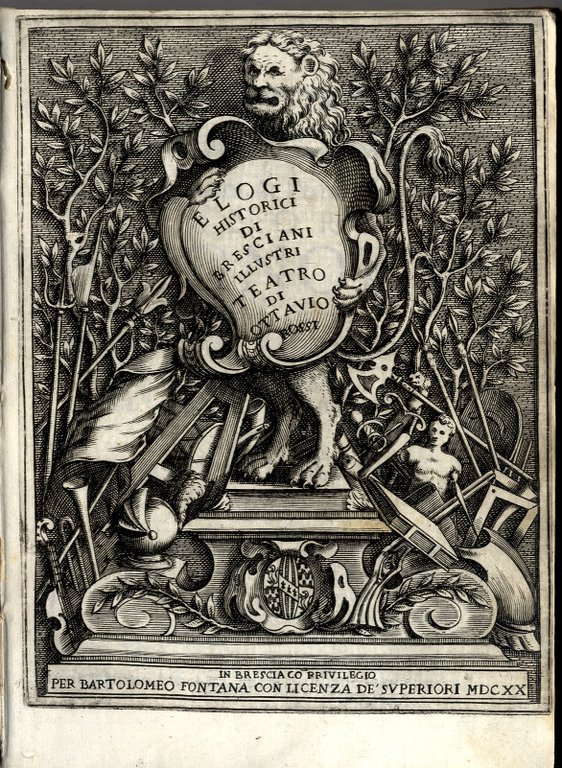 ELOGI
HISTORICI
DI
BRESCIANI
ILLVSTRI
TEATRO
DI
OTTAVIO
ROSSI
IN BRESCIA CÕ PRIVILEGIO
PER BARTOLOMEO FONTANA CON LICENZA DE' SVPERIORI MDCXX